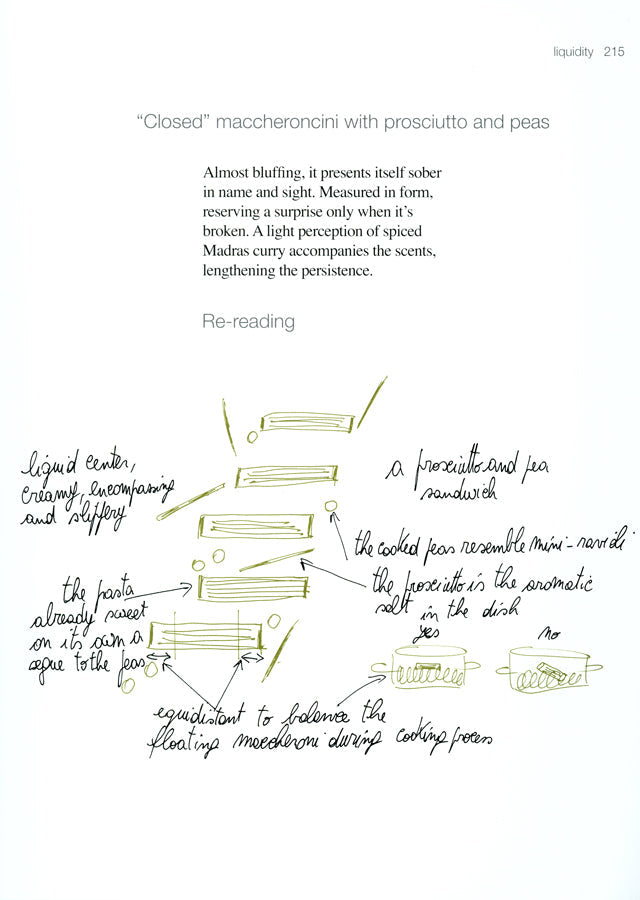 liquidity 215
“Closed” maccheroncini with prosciutto and peas
Almost bluffing, it presents itself sober
in name and sight. Measured in form,
reserving a surprise only when it’s
broken. A light perception of spiced
Madras curry accompanies the scents,
lengthening the persistence.
Re-reading
liquid center,
creamy, encompassing
and slippery
a prosciutto and pea
sandwich
the cooked peas resemble mini-ravioli
the prosciutto is the aromatic
salt in the dish
the pasta
already sweet
on its own a
segue to the peas
yes
no
equidistant to balance the
floating maccheroni during cooking process